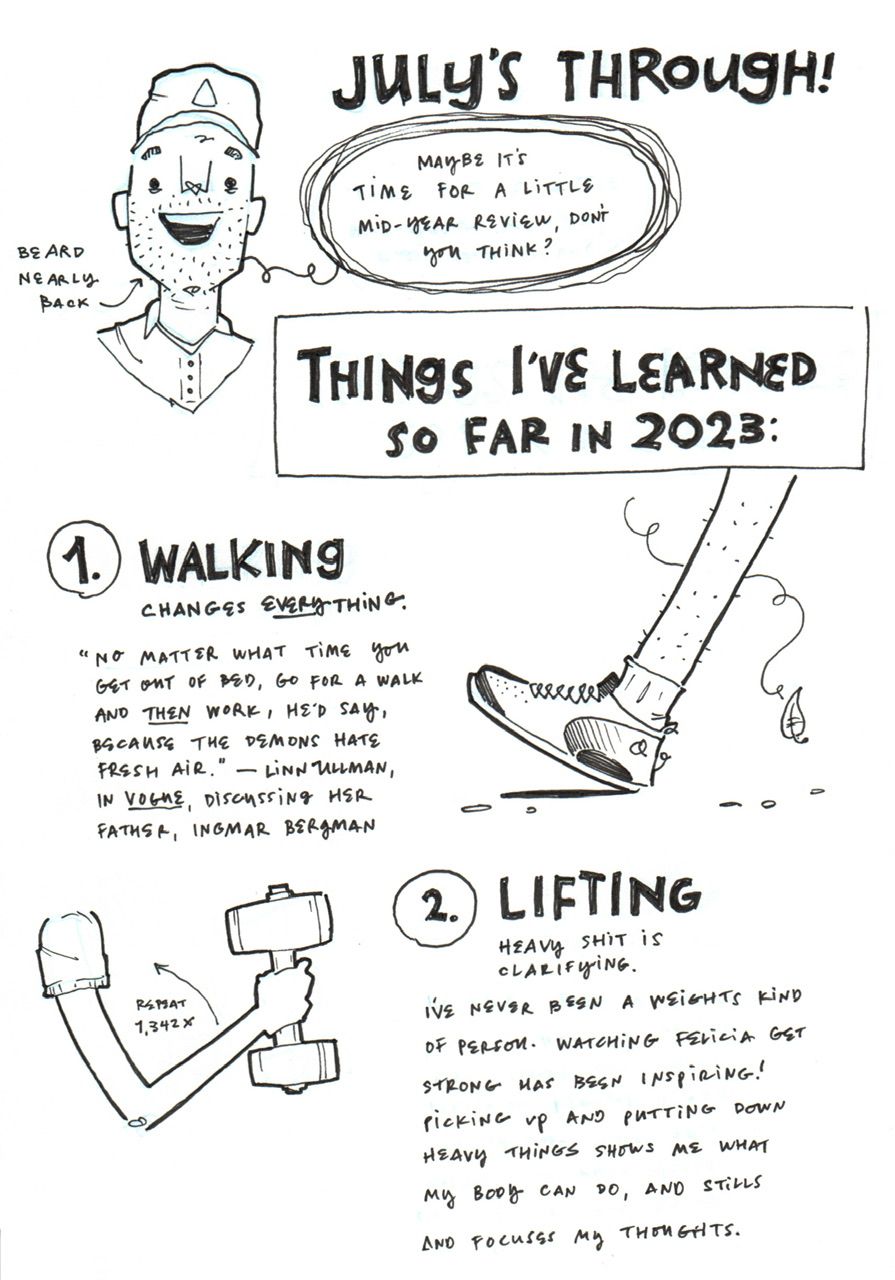 JULY'S THROUGH!
MAYBE IT'S
TIME FOR A LITTLE
MID-YEAR REVIEW, DON'T
YOU THINK?
BEARD
NEARLY
BACK
THINGS I'VE LEARNED
SO FAR IN 2023:
1. WALKING
CHANGES EVERYTHING.
"NO MATTER WHAT TIME YOU
GET OUT OF BED, GO FOR A WALK
AND THEN WORK, HE'D SAY,
BECAUSE THE DEMONS HATE
FRESH AIR." — LINN ULLMAN,
IN VOGUE, DISCUSSING HER
FATHER, INGMAR BERGMAN
2. LIFTING
HEAVY SHIT IS
CLARIFYING.
REPEAT
1,342X
I'VE NEVER BEEN A WEIGHTS KIND
OF PERSON. WATCHING FELICIA GET
STRONG HAS BEEN INSPIRING!
PICKING UP AND PUTTING DOWN
HEAVY THINGS SHOWS ME WHAT
MY BODY CAN DO, AND STILLS
AND FOCUSES MY THOUGHTS.